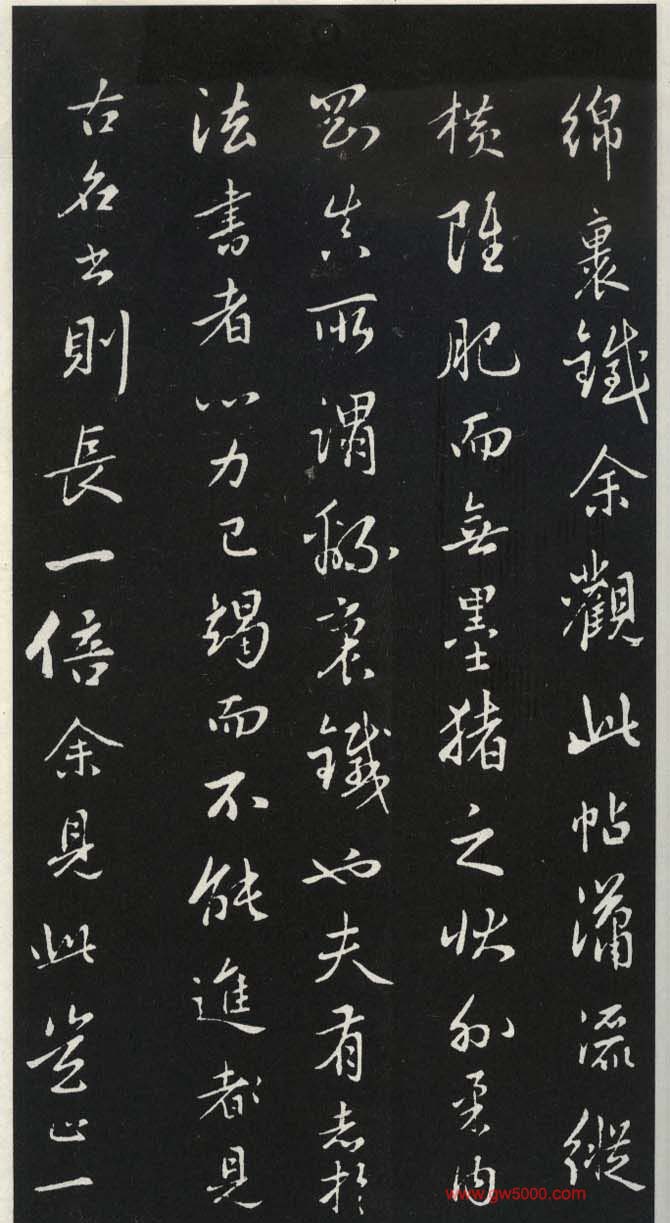 綿裹鐵余觀此帖瀟灑縱
橫雖肥而無墨猪之狀外柔内
剛真所謂綿裹鐵也夫有志於
法書者心力已竭而不能進都見
古名書則長一倍余見此豈止一
www.gw5000.com